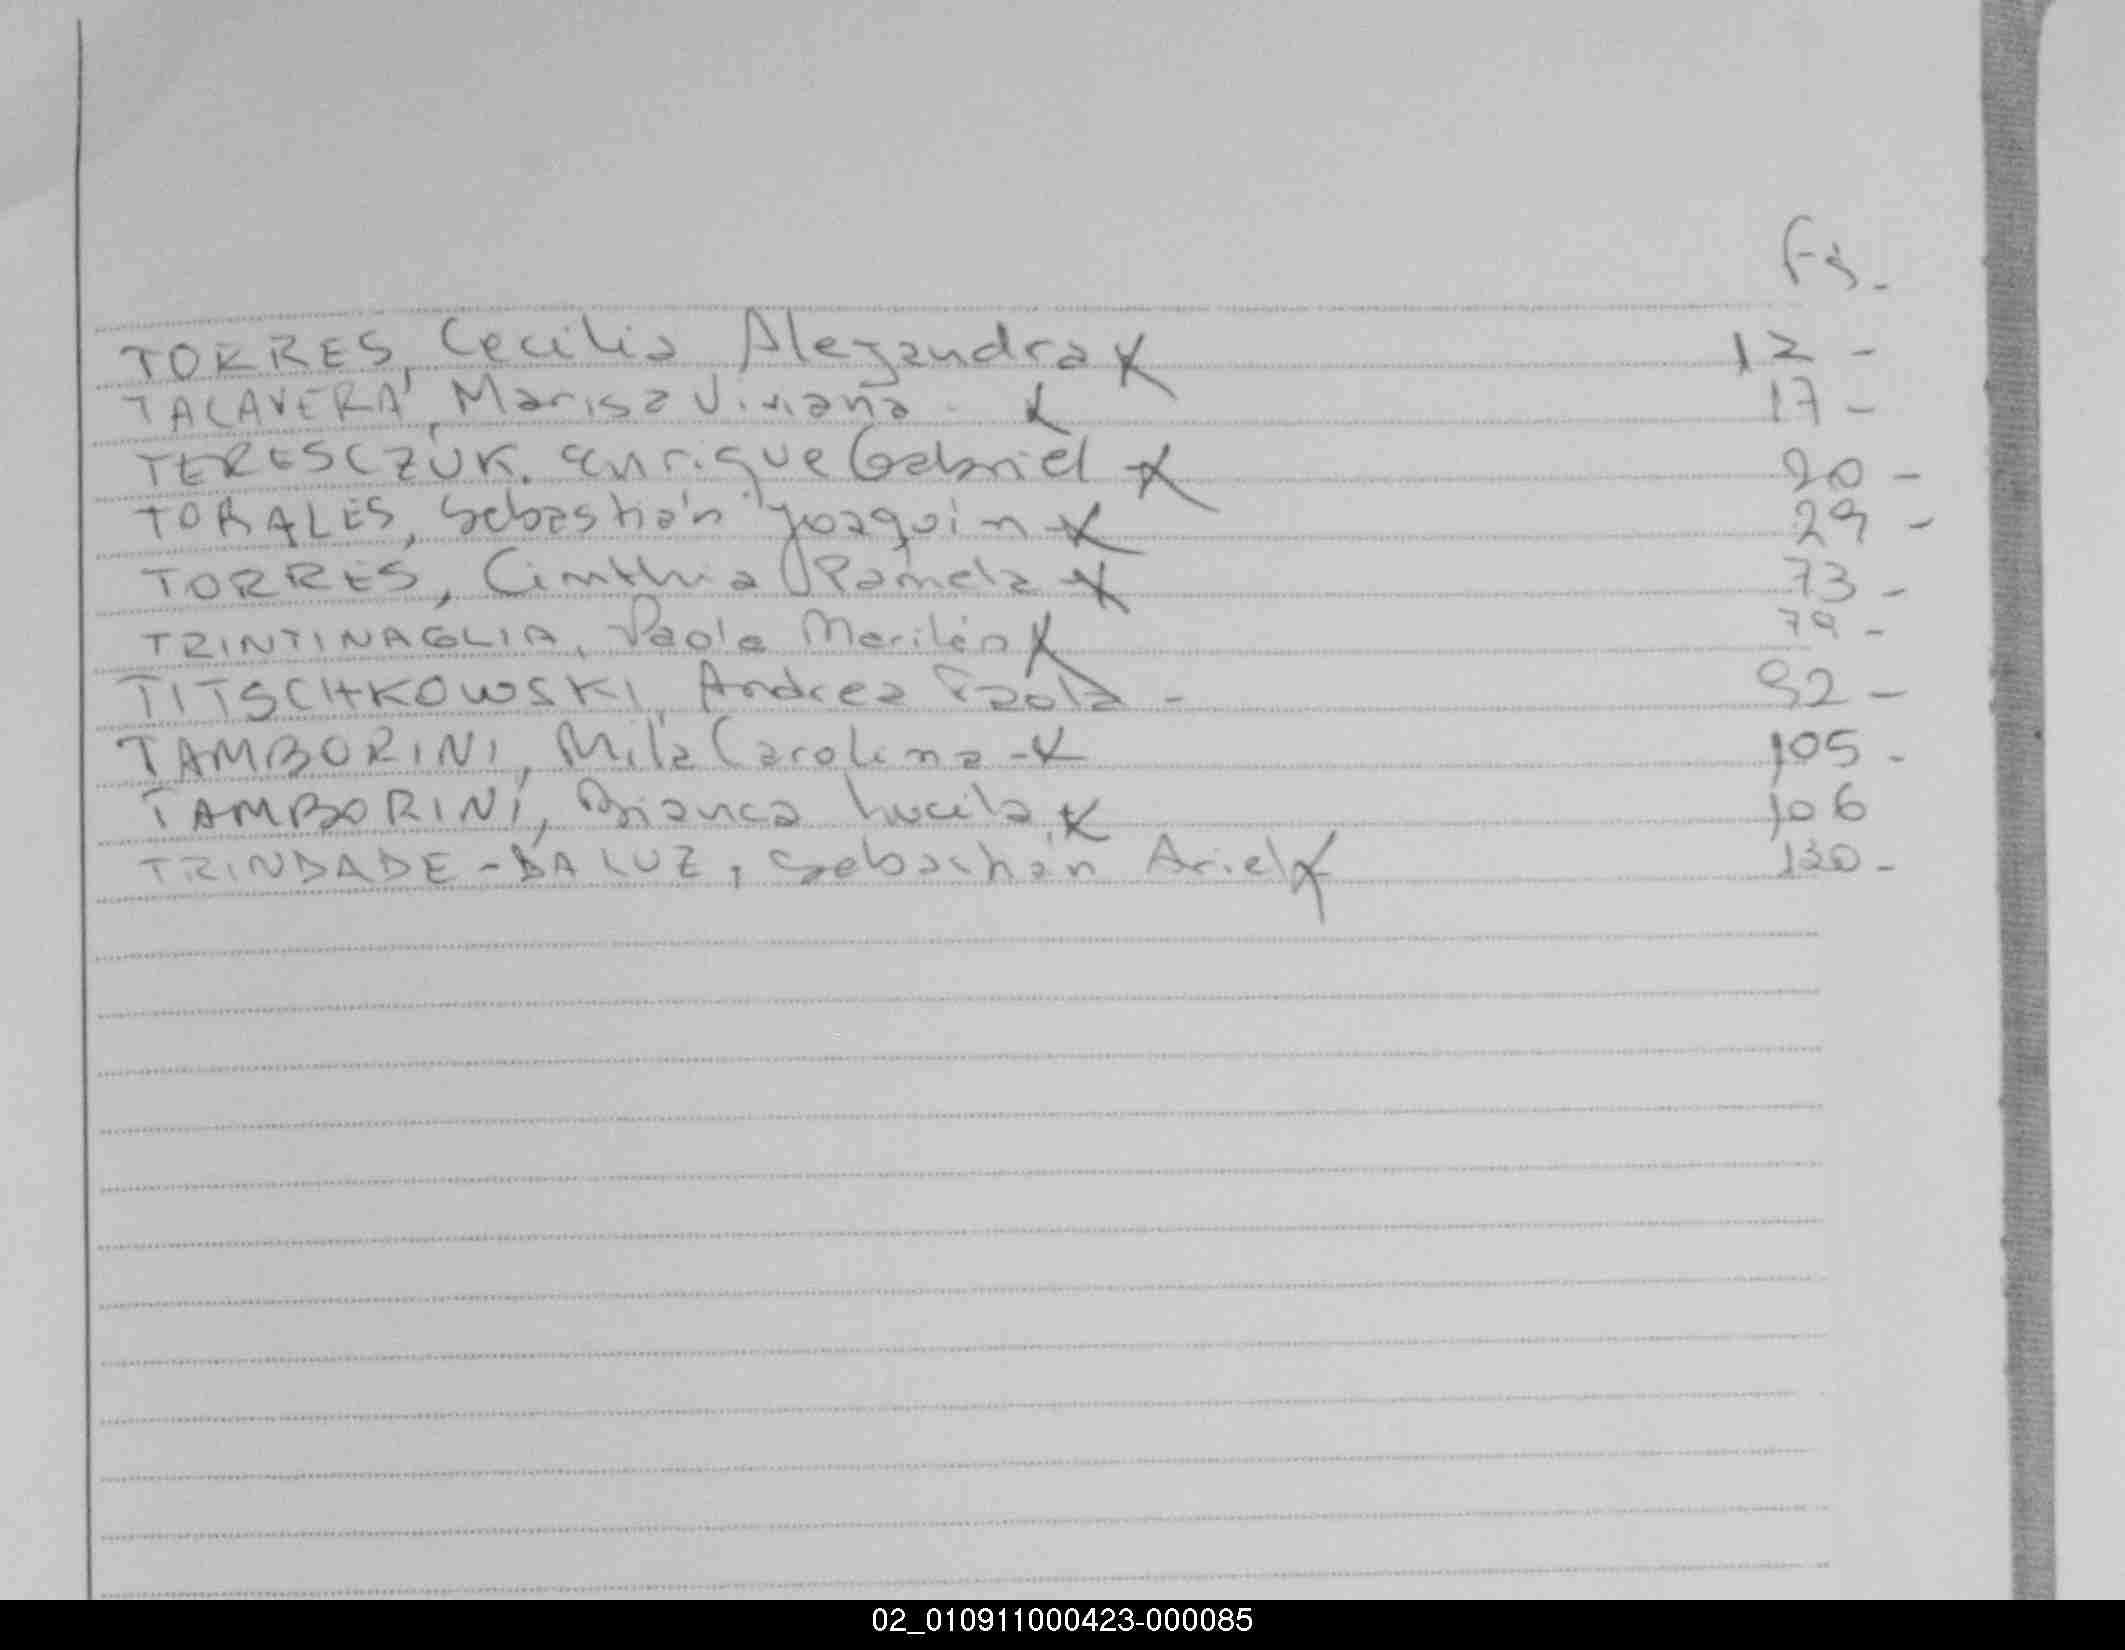 Fs.
TORRES, Cecilia Alejandra x 12 -
TALAVERA, Marisa Viviana - x 17 -
TERESCZUK, Enrique Gabriel x 20 -
TORALES, Sebastián Joaquin x 29 -
TORRES, Cinthia Pamela x 73 -
TRINTINAGLIA, Paola Marilén x 79 -
TITSCHKOWSKI, Andrea Paola - 92 -
TAMBORINI, Mila Carolina - x 105 -
TAMBORINI, Bianca Lucila x 106
TRINDADE - DA LUZ, Sebastián Ariel x 120 -
02_010911000423-000085